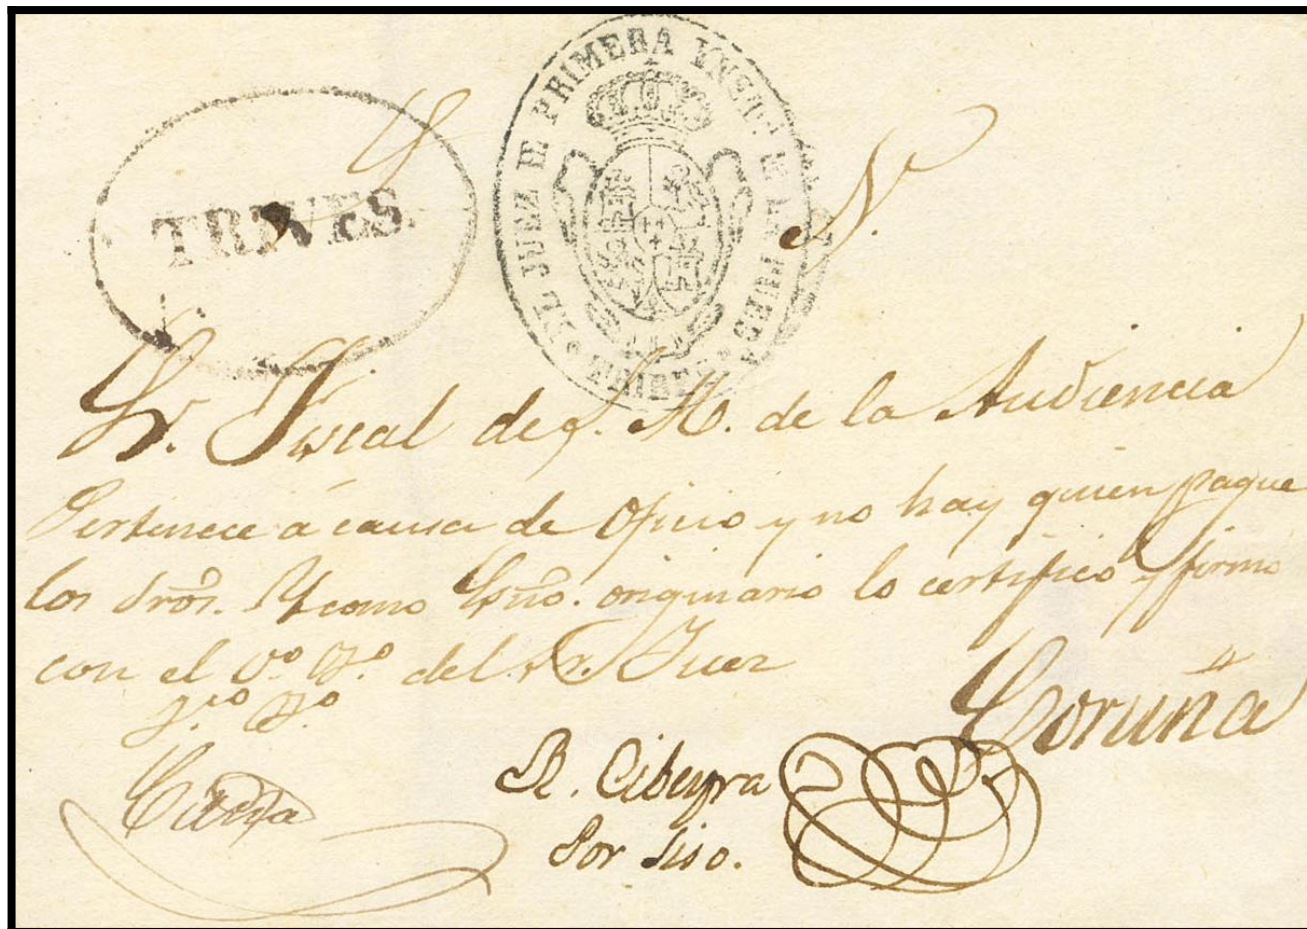 TRIVES.
EL JUEZ DE PRIMERA INST.ª DE LA PUEBLA
TRIBES
N.
Sr. Fiscal de S. M. de la Audiencia
Pertenece á causa de Oficio y no hay quien pague
los dros. Y como Esño. originario lo certifico y firmo
con el Vº Bº del Sr. Juez
Vº Bº
Coruña
R. Cibeyra